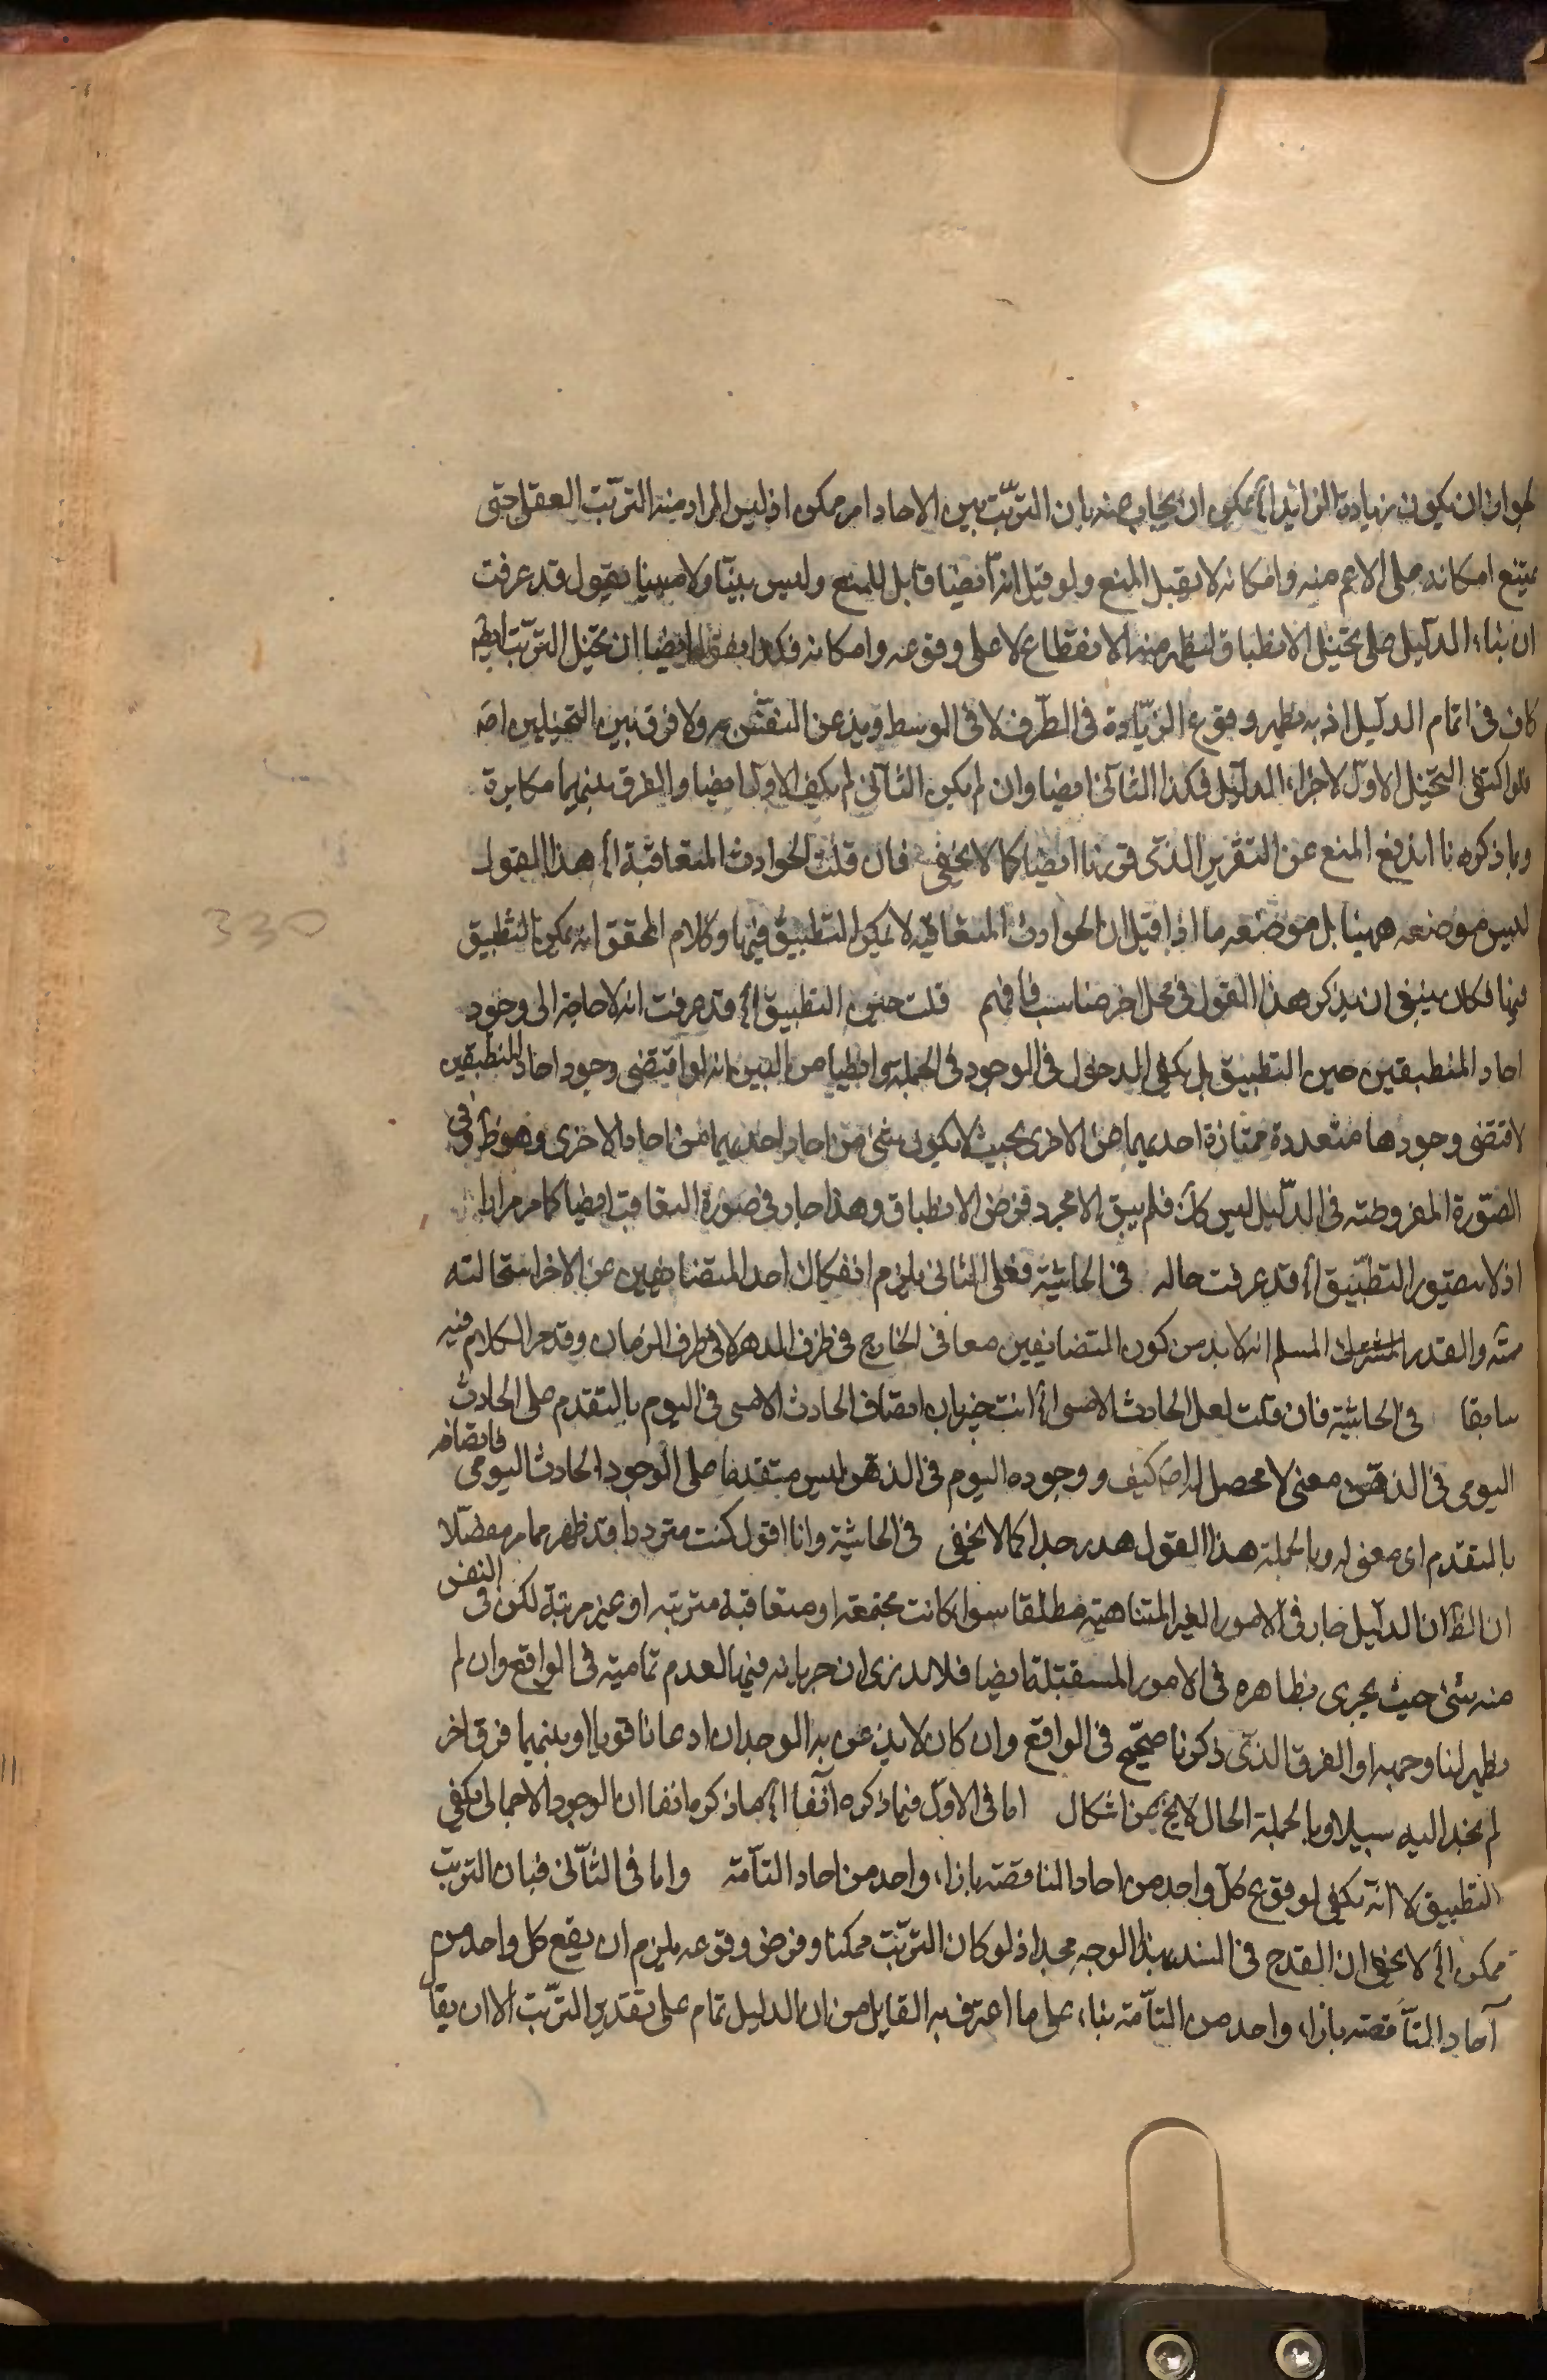 لجواز ان يكون زيادة الزائد اﻟﺦ يمكن ان يجاب عنه بان الترتّب بين الاحاد امر ممكن اذ ليس المراد منه الترتّب العقلى حتى
يمتنع امكانه على الاعم منه وامكانه لا يقبل المنع ولو قيل انه ايضا قابل للمنع وليس بيّنا ولا مبينا نقول قد عرفت
ان بناء الدليل على تخيّل الانطباق ليظهر منه الانقطاع لا على وقوعه وامكانه فكذا نقول ايضا ان تخيّل الترتّب ايضا
كاف فى اتمام الدليل اذ به يظهر وقوع الزيادة فى الطّرف لا فى الوسط ويذعن النفس به ولا فرق بين التخيلين اصلا
فلو اكتفى التخيل الاول لاجراء الدليل فكذا الثانى ايضا وان لم يكن الثانى لم يكف الاول ايضا والفرق بينهما مكابرة
وبما ذكرنا اندفع المنع عن التقرير الذى قررنا ايضا كما لا يخفى فان قلت الحوادث المتعاقبة اﻟﺦ هذا القول
ليس موضعه ههنا بل موضعه ما اذا قيل ان الحوادث المتعاقبة لا يمكن التطبيق فيها وكلام المحقق انه يمكن التطبيق
فيها فكان ينبغى ان يذكر هذا القول فى محل اخر مناسب فافهم قلت حين التطبيق اﻟﺦ قد عرفت انه لا حاجة الى وجود
احاد المنطبقين حين التطبيق بل يكفى الدخول فى الوجود فى الجملة وايضا من البين انه لو اقتضى وجود احاد المنطبقين
لاقتضى وجودها متعددة ممتازة احديهما عن الاخرى بحيث لا يكون شئ من احاد احديهما من احاد الاخرى وهو ظ وفى
الصّورة المفروضة فى الدّليل ليس كك فلم يبق الا مجرد فرض الانطباق وهذا جار فى صورة التعاقب ايضا كما مر مرارا
اذ لا يتصور التطبّيق اﻟﺦ قد عرفت حاله فى الحاشية فعلى الثانى يلزم انفكاك احد المتضايفين عن الاخر استحالته
ممنوعة والقدر المشترك المسلم انه لا بد من كون المتضايفين معا فى الخارج فى ظرف الدهر لا فى ظرف الزمان وقد مر الكلام فيه
سابقا فى الحاشية فان قلت لعل الحادث الامسى اﻟﺦ انت خبير بان اتصاف الحادث الامسى فى اليوم بالتقدم على الحادث
اليومى فى الذهن معنى لا محصل له اصلا كيف ووجوده اليوم فى الذهن ليس متقدما على الوجود الحادث اليومى فاتصافه
بالتقدم اى معنى له وبالجملة هذا القول هدر جدا كما لا يخفى فى الحاشية وانا اقول كنت مترددا قد ظهر مما مر مفصّلا
ان الظ ان الدليل جار فى الامور الغير المتناهية مطلقا سواء كانت مجتمعة او متعاقبة مترتبة او غير مرتبة لكن فى النفس
منه شئ حيث يجرى بظاهره فى الامور المستقبلة ايضا فلا ندرى ان جريانه فيها لعدم تماميته فى الواقع وان لم
يظهر لنا وجهه او الفرق الذى ذكرنا صحّيح فى الواقع وان كان لا يذعن به الوجدان اذعانا قويا او بينهما فرق اخر
لم نجد اليه سبيلا وبالجملة الحال لا يخ عن اشكال اما فى الاوّل فبما ذكره آنفا اﻟﺦ ما ذكره انفا ان الوجود الاجمالى يكفى
التطبيق لا انه يكفى لوقوع كل واحد من احاد الناقصة بازاء واحد من احاد التآمّة واما فى الثآنى فبان الترتب
ممكن اﻟﺦ لا يخفى ان القدح فى السند بهذا الوجه مجد اذ لو كان الترتّب ممكنا وفرض وقوعه يلزم ان يقع كل واحد من
آحاد النّاقصة بازاء واحد من التآمّة بناء على ما اعترف به القايل من ان الدليل تمام على تقدير الترّتب الا ان يقآ